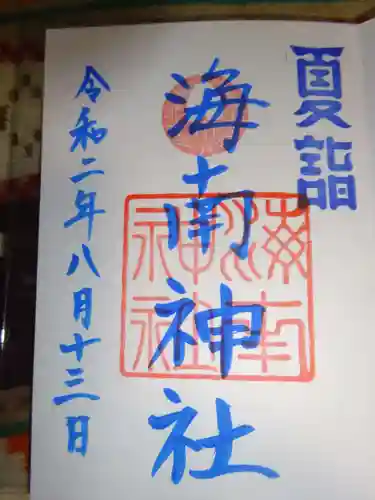 夏詣
海南神社
令和二年八月十三日
海南神社